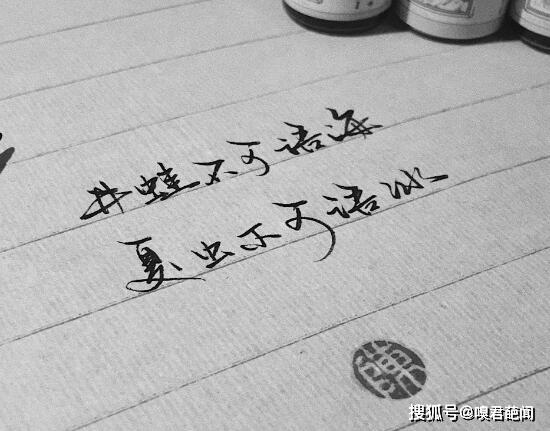 井蛙不可语海
夏虫不可语冰
搜狐号@噢君葩闻